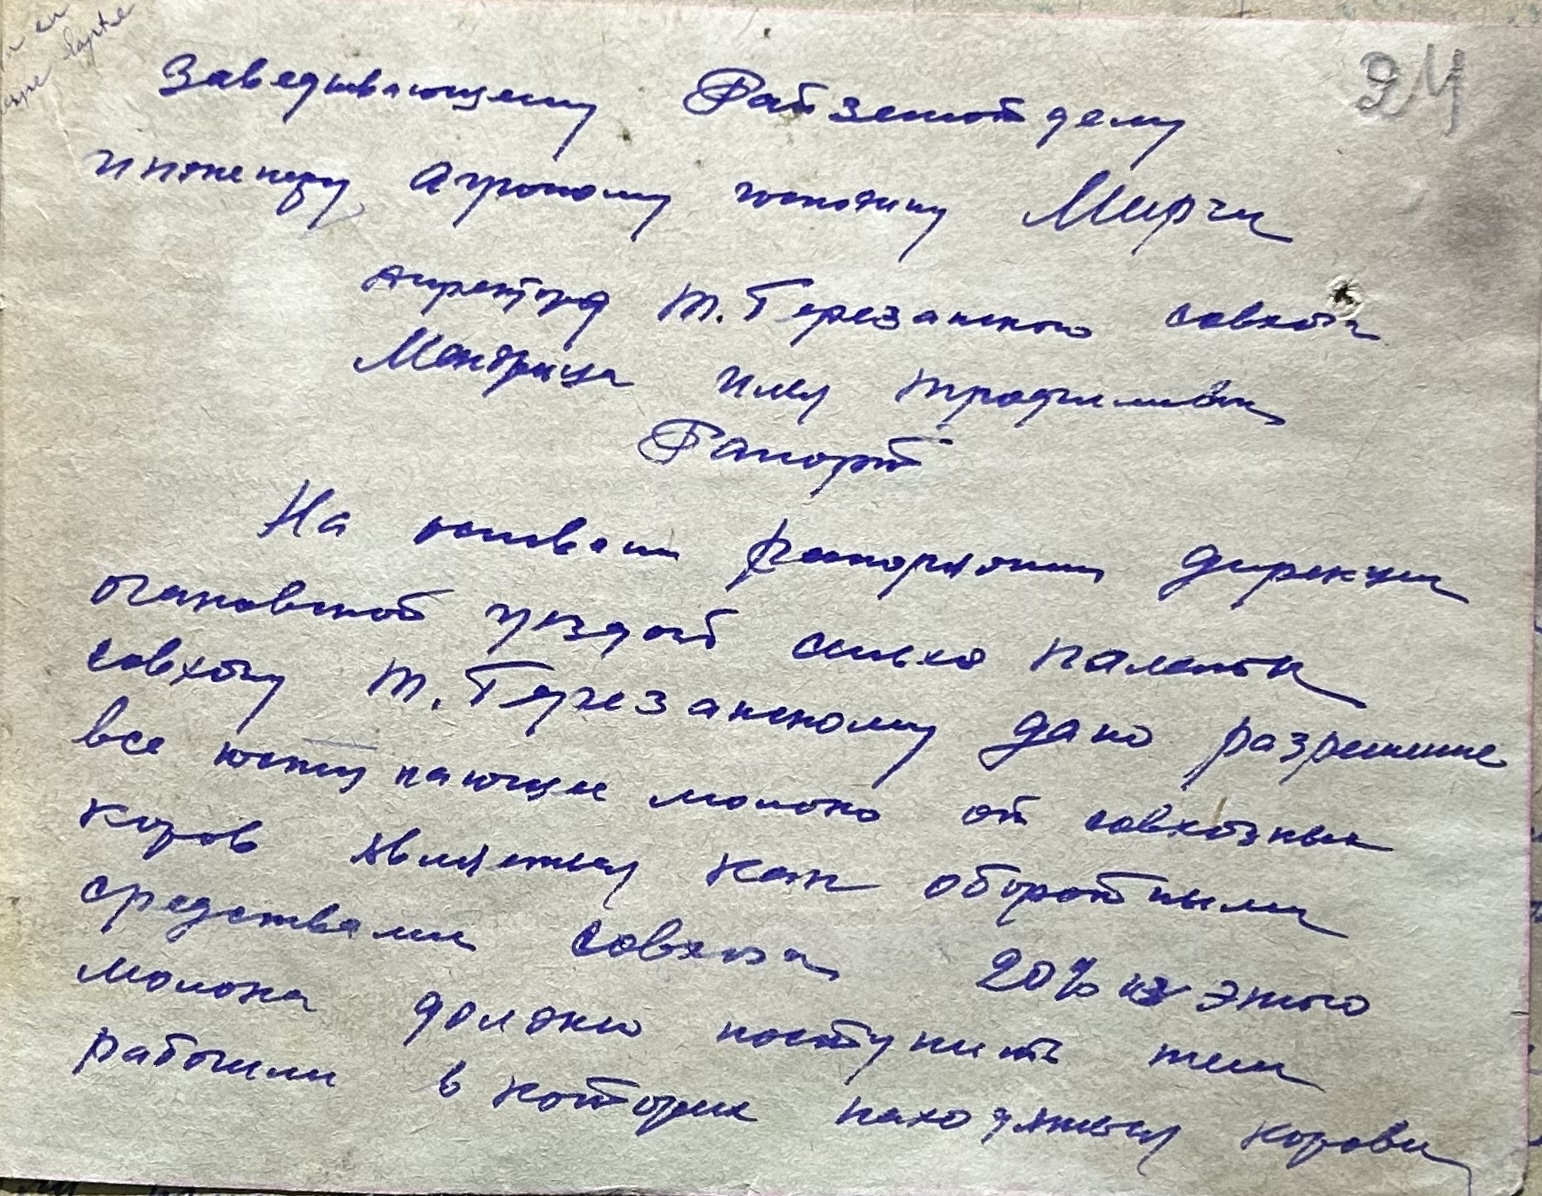 24
Заведывающему Райземотделу
инженеру Агроному господину Мирчи
директора Т. Герезанского совхоза
Мандрица Ильи Трофимович
Рапорт
На основании распоряжении дирекции
очаковской уездной сельхоз палаты
совхозу Т. Герезанскому дано разрешение
все поступающие молоко от совхозных
коров являеться как оборотными
средствами совхоза 20% из этого
молока должно поступить тем
рабочим в которых находяться коровы